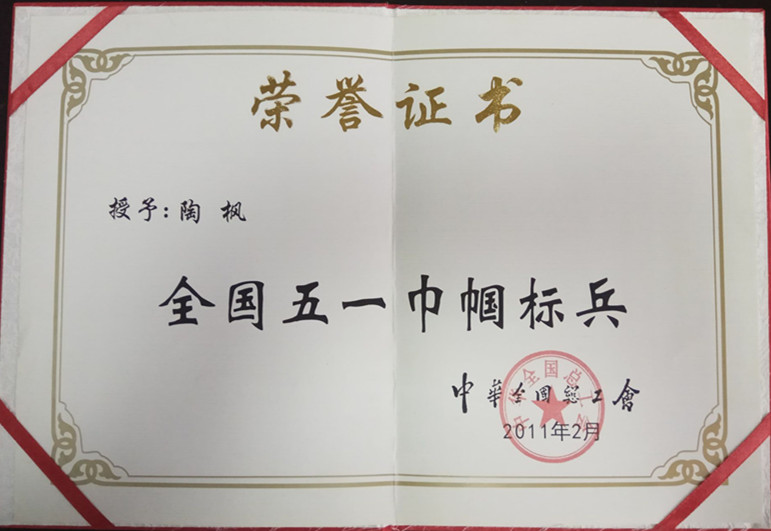 荣誉证书
授予：陶枫
全国五一巾帼标兵
中華全国總工會
中华全国总工会
2011年2月